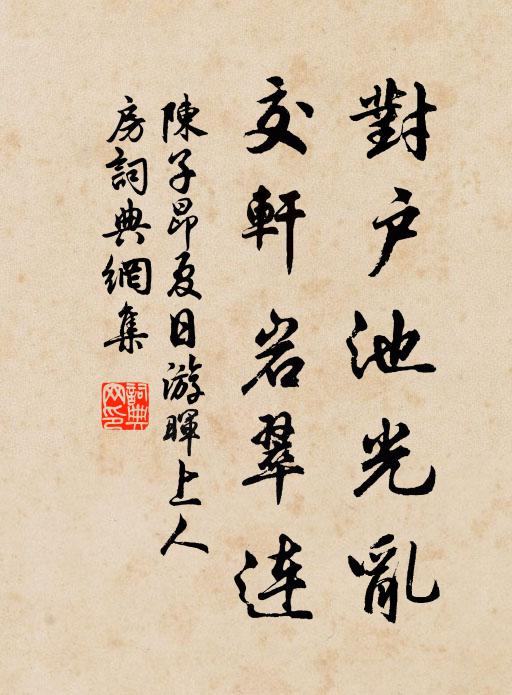 對户池光亂
交軒岩翠連
陳子昂夏日游暉上人
房詞典網集
詞典
网印